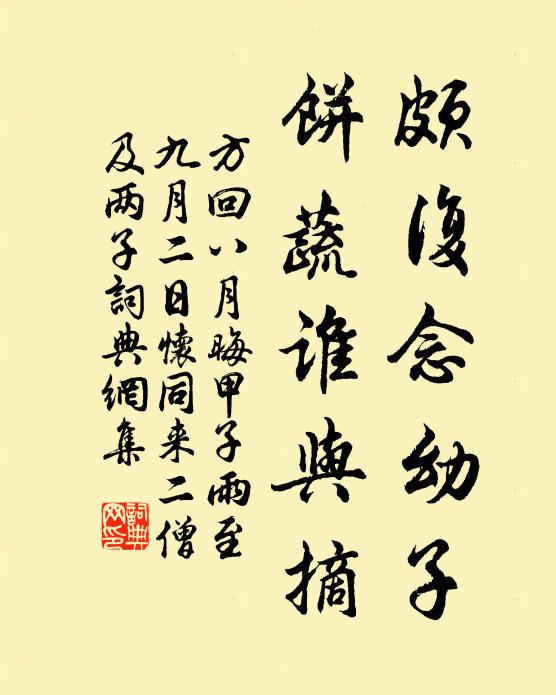 頗復念幼子
餅蔬誰與摘
方回八月晦甲子雨至
九月二日懷同来二僧
及两子詞典網集
詞典
网印